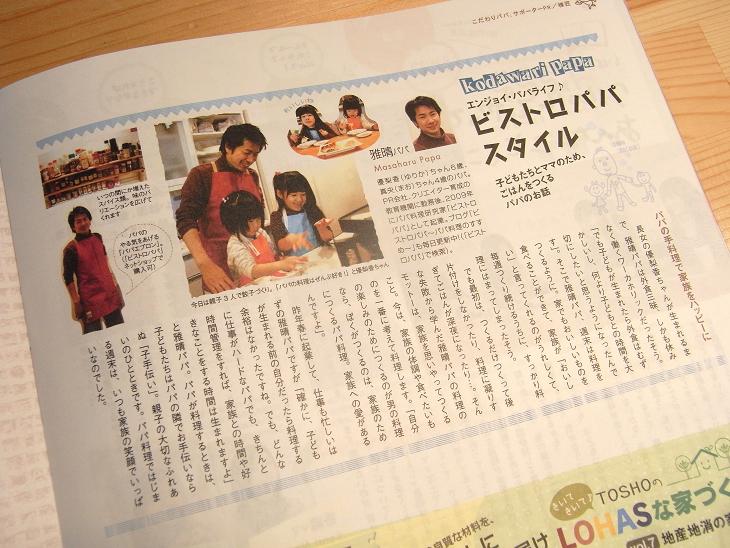 こだわりパパ、サポーターPR／雅臣
kodawari papa
エンジョイ・パパライフ♪
ビストロパパ
スタイル
子どもたちとママのため、
ごはんをつくる
パパのお話
おいしいね
雅晴パパ
Masaharu Papa
優梨香（ゆりか）ちゃん6歳、
真矢（まお）ちゃん4歳のパパ。
PR会社、クリエイター育成の
教育機関に勤務後、2009年
にパパ料理研究家「ビストロ
パパ」として起業。ブログ「ビ
ストロパパ～パパ料理のすす
め～」も毎日更新中（「ビストロ
パパ」で検索）。
いつの間にか増えた
スパイス類。味のバ
リエーションを広げて
くれます
パパの
やる気をあげる
「パパエプロン」。
（「ビストロパパ」
ネットショップで
購入可）
今日は親子3人で餃子づくり。「パパの料理はぜんぶ好き！」と優梨香ちゃん
パパの手料理で家族をハッピーに
長女の優梨香ちゃんが生まれるま
で、雅晴パパは外食三昧。しかも休み
なく働くワーカホリックだったそう。
「でも子どもが生まれたら外食はむず
かしいし、何より子どもとの時間を大
切にしたいと思うようになったんで
す」。そこで雅晴パパ、週末は料理を
つくるように。「家でもおいしいものを
食べることができて、家族が『おいし
い』と言ってくれるのがうれしくて。
毎週つくり続けるうちに、すっかり料
理にはまってしまったそう。
でも最初は、つくるだけつくって後
片付けをしなかったり、料理に凝りす
ぎてごはんが深夜になったり…。そん
な失敗から学んだ雅晴パパの料理の
モットーは、家族を思いやってつくる
こと。今は、家族の体調や食べたいも
のを一番に考えて料理します。「自分
の楽しみのためにつくるのが男の料理
なら、ぼくがつくるのは、家族のため
につくるパパ料理。家族への愛がある
んですよ」。
昨年春に起業して、仕事も忙しいは
ずの雅晴パパですが「確かに、子ども
が生まれる前の自分だったら料理する
余裕はなかったですね。でも、どんな
に仕事がハードなパパでも、きちんと
時間管理をすれば、家族との時間や好
きなことをする時間は生まれますよ」
と雅晴パパ。パパが料理するときは、
子どもたちはパパの隣でお手伝いなら
ぬ「子手伝い」。親子の大切なふれあ
いのひとときです。パパ料理ではじま
る週末は、いつも家族の笑顔でいっぱ
いなのでした。
きいて
きいて♪
TOSHOの
LOHASな家づく
vol.7 地産地消の家
良質な材料を、
届け